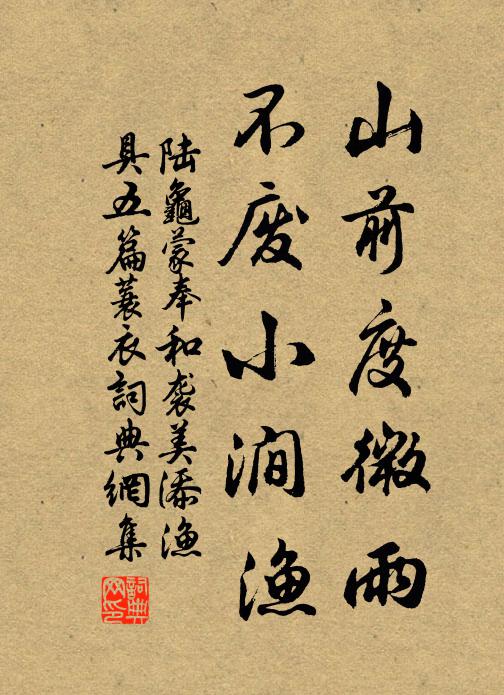 山前度微雨
不废小澗渔
陆龜蒙奉和袭美添渔
具五篇蓑衣詞典網集
詞典网印